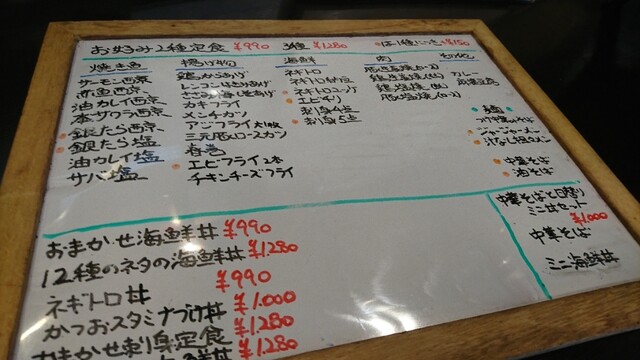 お好み2種定食 ¥990 3種 ¥1280
焼き魚
サーモン西京
赤魚西京
油カレイ西京
本サワラ西京
銀だら西京
銀だら塩
油カレイ塩
サバ塩
揚げ物
鶏からあげ
レンコンはさみあげ
カキフライ
メンチカツ
アジフライ
三元豚ロースカツ
春巻
エビフライ2本
チキンチーズフライ
海鮮
ネギトロ
ネギトロ納豆
ネギトロユッケ
エビチリ
刺身4点
刺身5点
肉
その他
カレー
麻婆豆腐
麺
ジャージャーメン
汁なし坦々メン
中華そば
油そば
中華そばと日替り
ミニ丼セット
¥1,000
中華そば
ミニ海鮮丼
おまかせ海鮮丼 ¥990
12種のネタの海鮮丼 ¥1,280
ネギトロ丼 ¥990
かつおスタミナづけ丼 ¥1,000
おまかせ刺身定食 ¥1,280
¥1,280